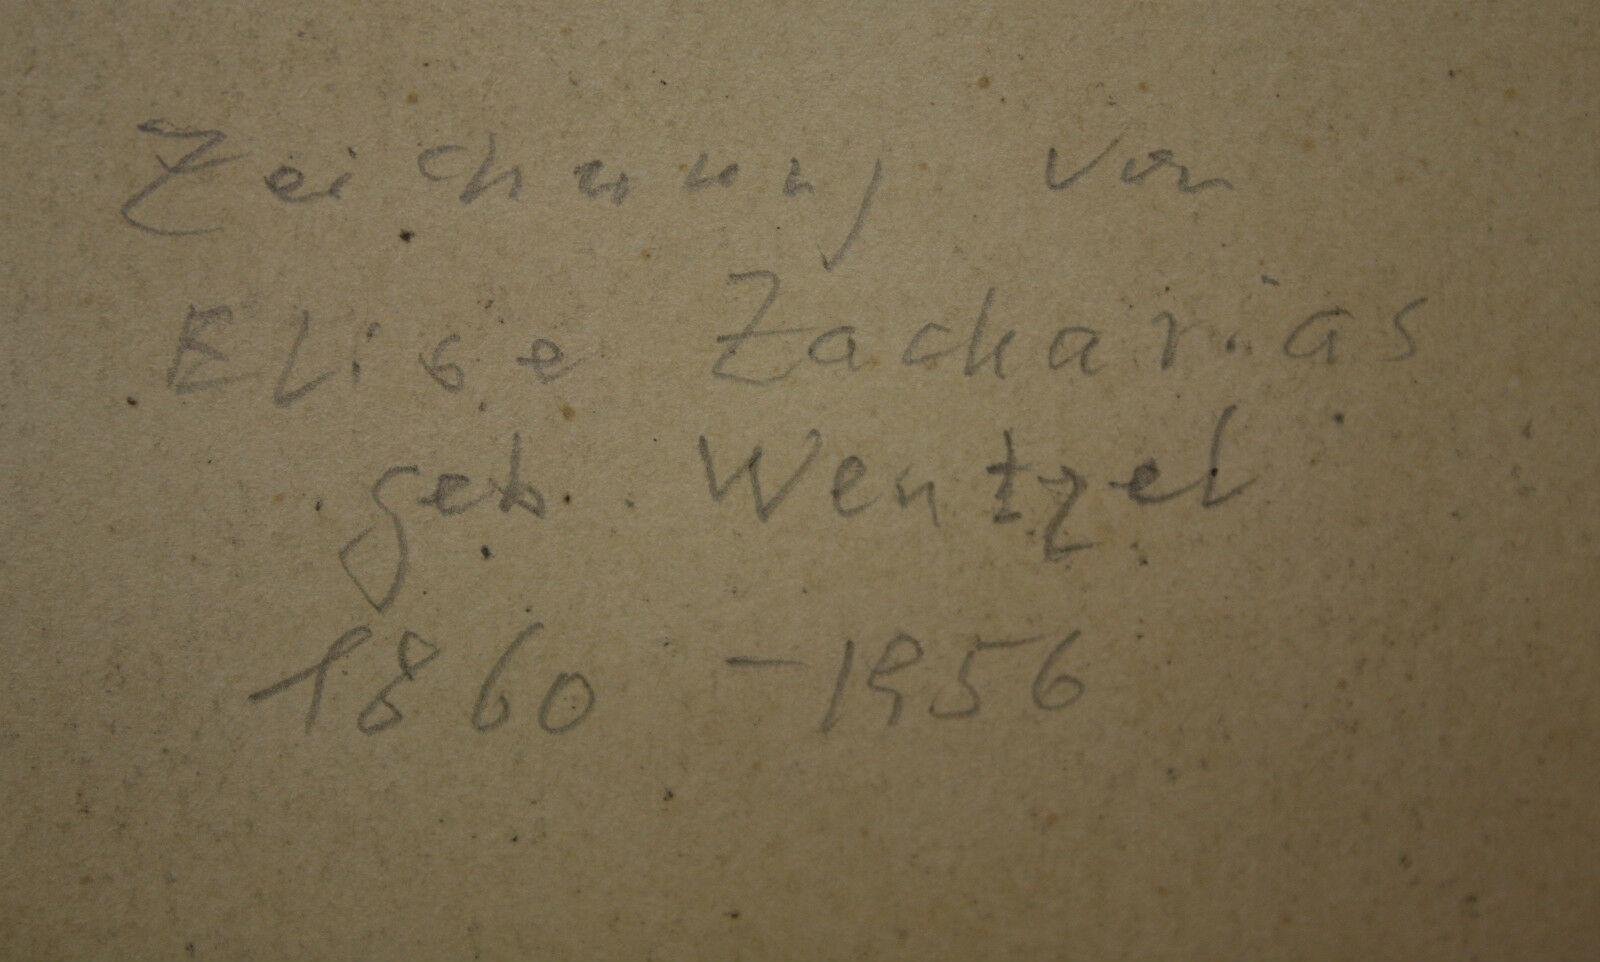 Zeichnung von
Elise Zacharias
geb. Wentzel
1860 - 1956